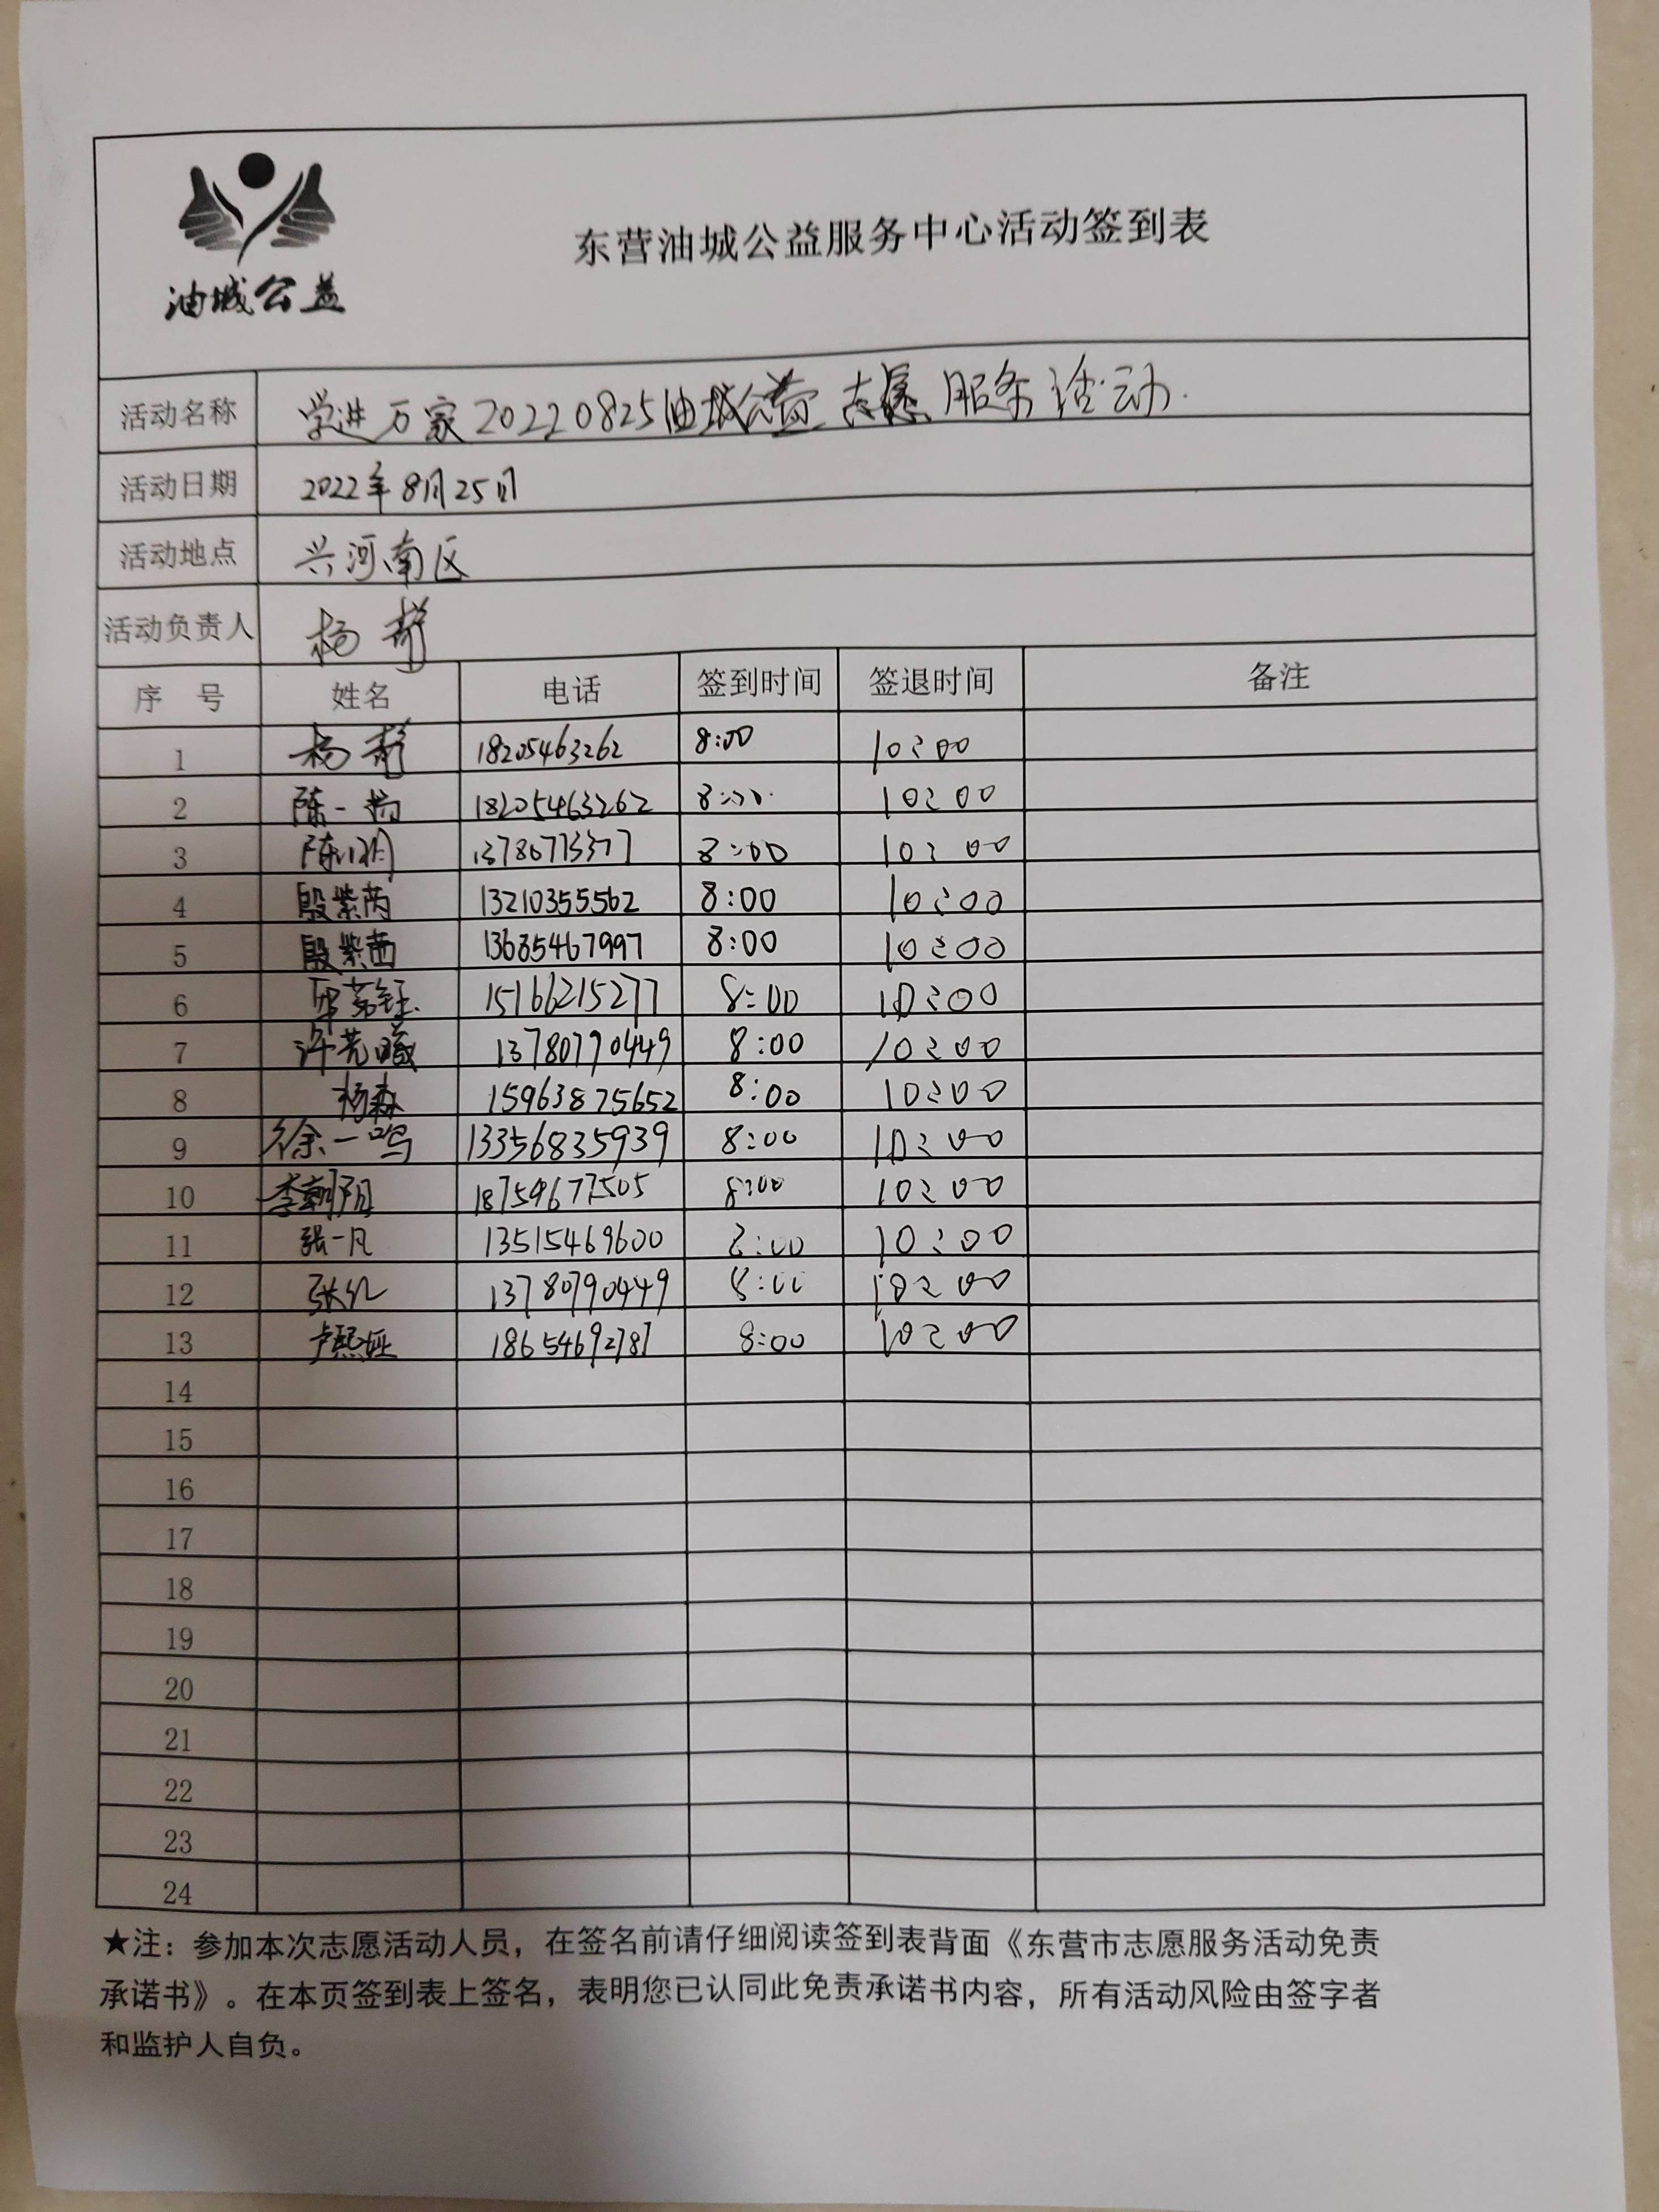 油城公益
东营油城公益服务中心活动签到表
活动名称 学进万家20220825油城公益志愿服务活动.
活动日期 2022年8月25日
活动地点 兴河南区
活动负责人 杨静
序 号 姓名 电话 签到时间 签退时间 备注
1 杨静 18205463262 8:00 10:00
2 陈一扬 18205463262 8:00 10:00
3 8:00 10:00
4 殷紫芮 13210355562 8:00 10:00
5 殷紫茜 13685467997 8:00 10:00
6 15166215277 8:00 10:00
7 13780790449 8:00 10:00
8 杨森 15963875652 8:00 10:00
9 徐一鸣 13356835939 8:00 10:00
10 李朝阳 18759677505 8:00 10:00
11 张一凡 13515469600 8:00 10:00
12 13780790449 8:00 10:00
13 卢熙娅 18654692787 8:00 10:00
14
15
16
17
18
19
20
21
22
23
24
★注：参加本次志愿活动人员，在签名前请仔细阅读签到表背面《东营市志愿服务活动免责
承诺书》。在本页签到表上签名，表明您已认同此免责承诺书内容，所有活动风险由签字者
和监护人自负。